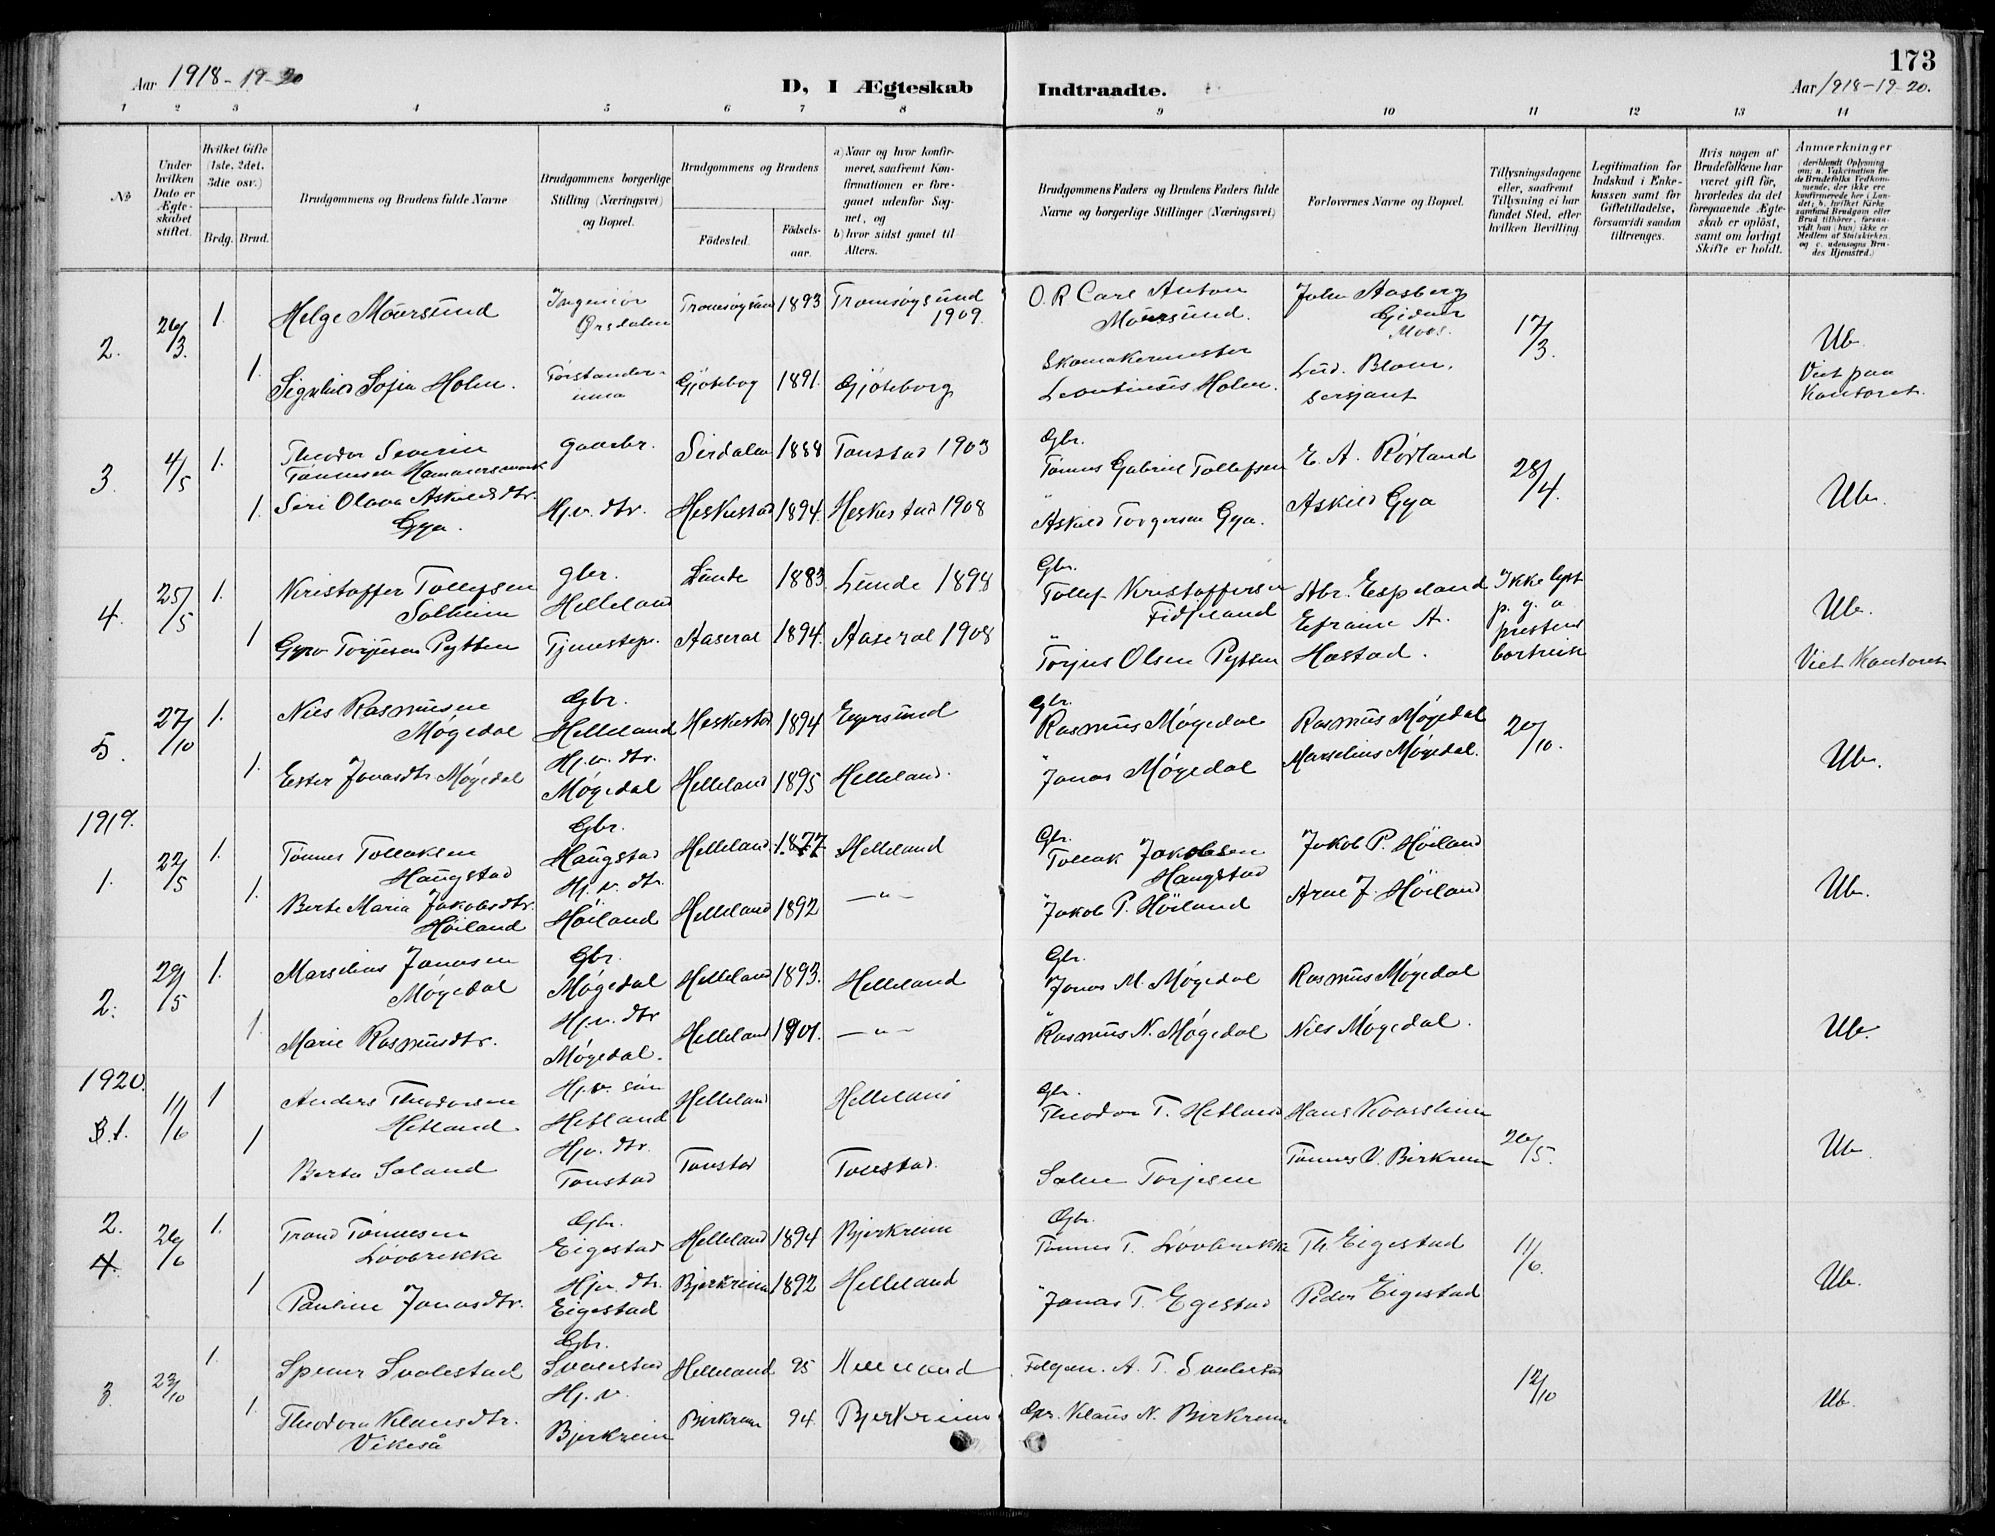 173
Aar 1918-19-20
D, I Ægteskab Indtraadte.
Aar 1918-19-20.
1 2 3 4 5 6 7 8 9 10 11 12 13 14
No
Under hvilken Dato er Ægteskabet stiftet.
Hvilket Gifte (1ste, 2det, 3die osv.)
Brdg. Brud.
Brudgommens og Brudens fulde Navne
Brudgommens borgerlige Stilling (Næringsvei) og Bopæl.
Brudgommens og Brudens
Födested. Födselsaar.
a) Naar og hvor konfirmeret, saafremt Konfirmationen er foregaaet udenfor Sognet, og b) hvor sidst gaaet til Alters.
Brudgommens Faders og Brudens Faders fulde Navne og borgerlige Stillinger (Næringsvei)
Forlovernes Navne og Bopæl.
Tillysningsdagene eller, saafremt Tillysning ei har fundet Sted, efter hvilken Bevilling.
Legitimation for Indskud i Enkekassen samt for Giftetilladelse, forsaavidt saadan tiltrænges.
Hvis nogen af Brudefolkene har været gift før, hvorledes da det foregaaende Ægteskab er opløst, samt om lovligt Skifte er holdt.
Anmærkninger
2. 26/3. 1. Helge Moursund Ingeniør Ørsdalen Tromsøysund 1893 Tromsøysund 1909. O. R. Carl Anton Moursund. John Aasberg Gjedan Moss. 17/3. Ub.
1. Signhild Sofia Holm. Forstanderinna Gjöteborg 1891. Gjöteborg Skomakermester Leontinus Holm. Lud. Blom, sersjant Viet paa Kontoret.
3. 4/5 1. Theodor Severin Tönnesen Hammersmark gaardbr. Sirdalen 1888 Tonstad 1903 Gbr. Tönnes Gabriel Tollefsen E. A. Rörland 28/4. Ub.
1. Seri Olava Askildsdtr. Gya. Hj.v. dtr. Heskestad 1894. Heskestad 1908 " Askild Torgersen Gya. Askild Gya
4. 25/5 1. Kristoffer Tollefsen Solheim gbr. Helleland Lunde 1883 Lunde 1898 Gbr. Tollef Kristoffersen Fidjeland Abr. Espeland Ikke lyst p. g. a prestens bortreise Ub.
1 Gyro Torjesen Pytten Tjenestep. Aaseral 1894. Aaseral 1908 " Torjus Olsen Pytten Efraim A. Hastad. Viet Kontoret
5. 27/10 1. Nils Rasmusen Møgedal Gbr. Helleland Heskestad 1894 Egersund gbr. Rasmus Møgedal Rasmus Møgedal 20/10. Ub.
1. Ester Jonasdtr Møgedal Hj.v. dtr. Møgedal Helleland 1895 Helleland. " Jonas Møgedal Marselius Møgedal.
1919.
1. 22/5 1. Tönnes Tollaksen Haugstad Gbr. Haugstad Helleland 1877 Helleland Gbr. Tollak Jakobsen Haugstad Jakob P. Höiland Ub.
1. Berte Maria Jakobsdtr. Höiland Hj. v. dtr. Höiland Helleland 1892 —"— " Jakob P. Höiland Arne J. Höiland
2. 29/5 1. Marselius Jonasen Møgedal Gbr. Møgedal Helleland 1893. Helleland Gbr. Jonas M. Møgedal Rasmus Møgedal
1. Marie Rasmusdtr. Hj.v. dtr Møgedal. Helleland 1901. —"— " Rasmus N. Møgedal Nils Møgedal. Ub.
1920.
1. 11/6 1 Anders Theodorsen Hetland. Hj.v. sön Hetland Helleland Helleland Gbr. Theodor T. Hetland Hans Kvassheim 26/5. Ub.
1 Berta Saland Hjv. dtr. Tonstad Tonstad Tonstad. Salve Torjesen Tönnes V. Birkrem
2. 26/6 1. Trond Tönnesen Lövbrekke Gbr. Eigestad Helleland 1894 Bjerkreim Gbr. Tönnes T. Lövbrekke Th. Eigestad 11/6. Ub.
1 Pauline Jonasdtr. Hjv. dtr. Eigestad Bjerkreim 1892 Helleland " Jonas T. Egestad Peder Eigestad
3. 23/10 1. Spenser Svalestad Gbr. Svalestad Helleland 95 Helleland Folgem. A. T. Svalestad 12/10 Ub.
1. Theodora Klausdtr. Vikeså Hj. v. Bjerkreim Birkrem 94. Bjerkreim Gbr. Klaus N. Birkrem